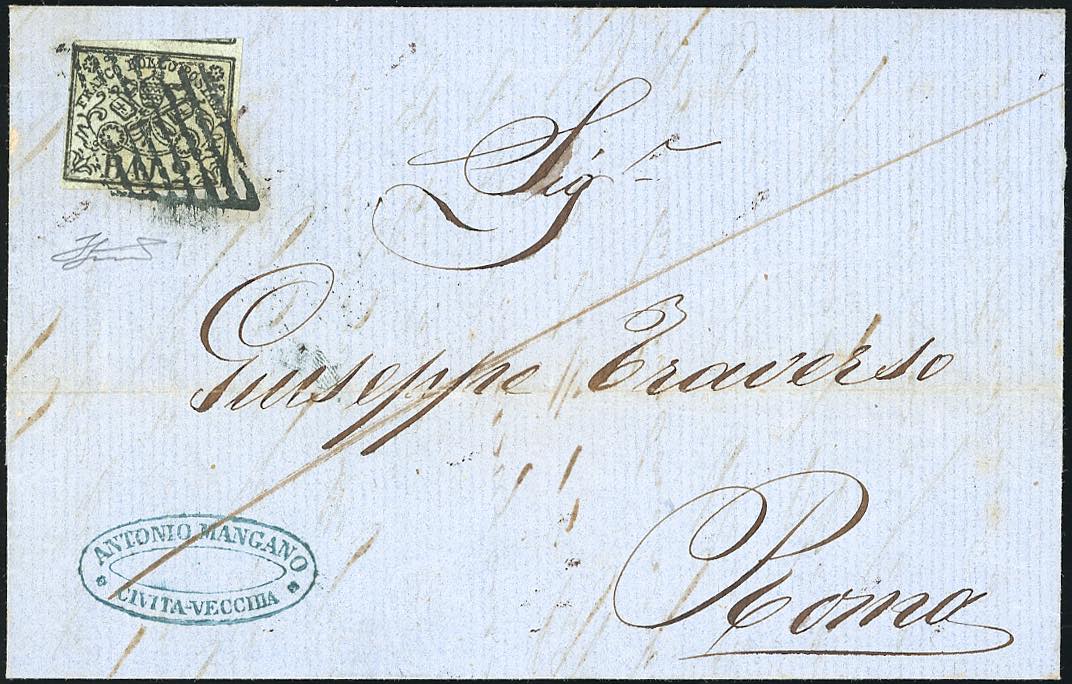 FRANCO BOLLO POSTALE
BAJ
Sigr
Giuseppe Traverso
Roma
ANTONIO MANGANO
CIVITA-VECCHIA